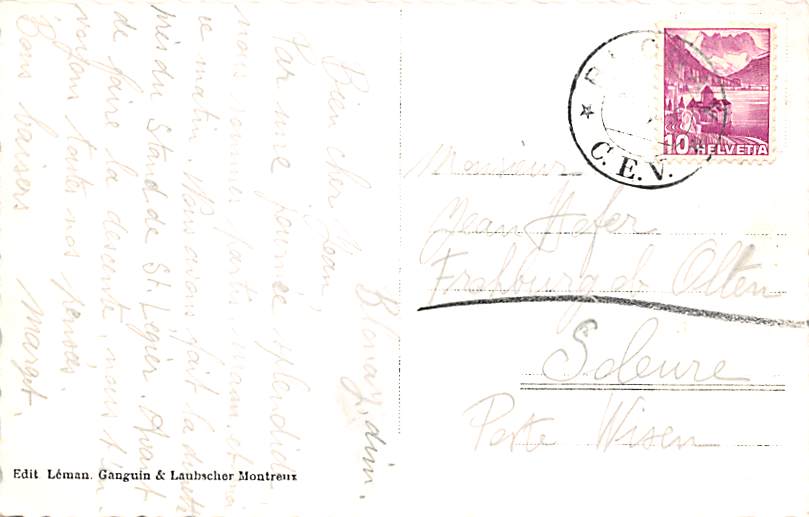 Blonay, dim.
Bien cher Jean,
Par une journée splendide
nous sommes partis, mam. et moi
ce matin. Nous avions fait la dinette
près du Stand de St. Légier. Avant
de faire la descente, nous t'en-
voyons toutes nos pensées.
Bons baisers Margt.
Edit Léman. Ganguin & Laubscher Montreux
C.E.V.
10 HELVETIA
Monsieur
Jean Hofer
Frohburg ob Olten
Soleure
Poste Wisen